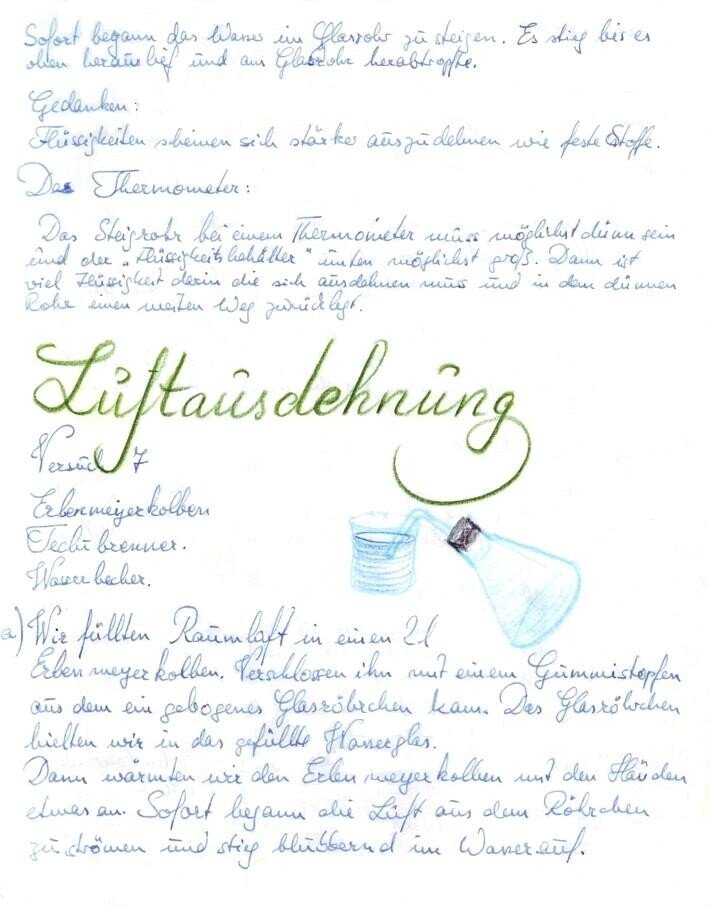 Sofort begann das Wasser im Glasrohr zu steigen. Es stieg bis es
oben herauslief und am Glasrohr herabtropfte.
Gedanken:
Flüssigkeiten sheinen sich stärker auszudehnen wie feste Stoffe.
Das Thermometer:
Das Steigrohr bei einem Thermometer muss möglichst dünn sein
und der „Flüssigkeitsbehälter" unten möglichst groß. Dann ist
viel Flüssigkeit darin die sich ausdehnen muss und in dem dünnen
Rohr einen weiten Weg zurücklegt.
Luftausdehnung
Versuch 7
Erlenmeyerkolben
Teclubrenner.
Wasserbecher.
a) Wir füllten Raumluft in einen 2l
Erlenmeyerkolben. Verschlossen ihn mit einem Gummistopfen
aus dem ein gebogenes Glasröhrchen kam. Das Glasröhrchen
hielten wir in das gefüllte Wasserglas.
Dann wärmten wir den Erlenmeyerkolben mit den Händen
etwas an. Sofort begann die Luft aus dem Röhrchen
zu strömen und stieg blubbernd im Wasser auf.